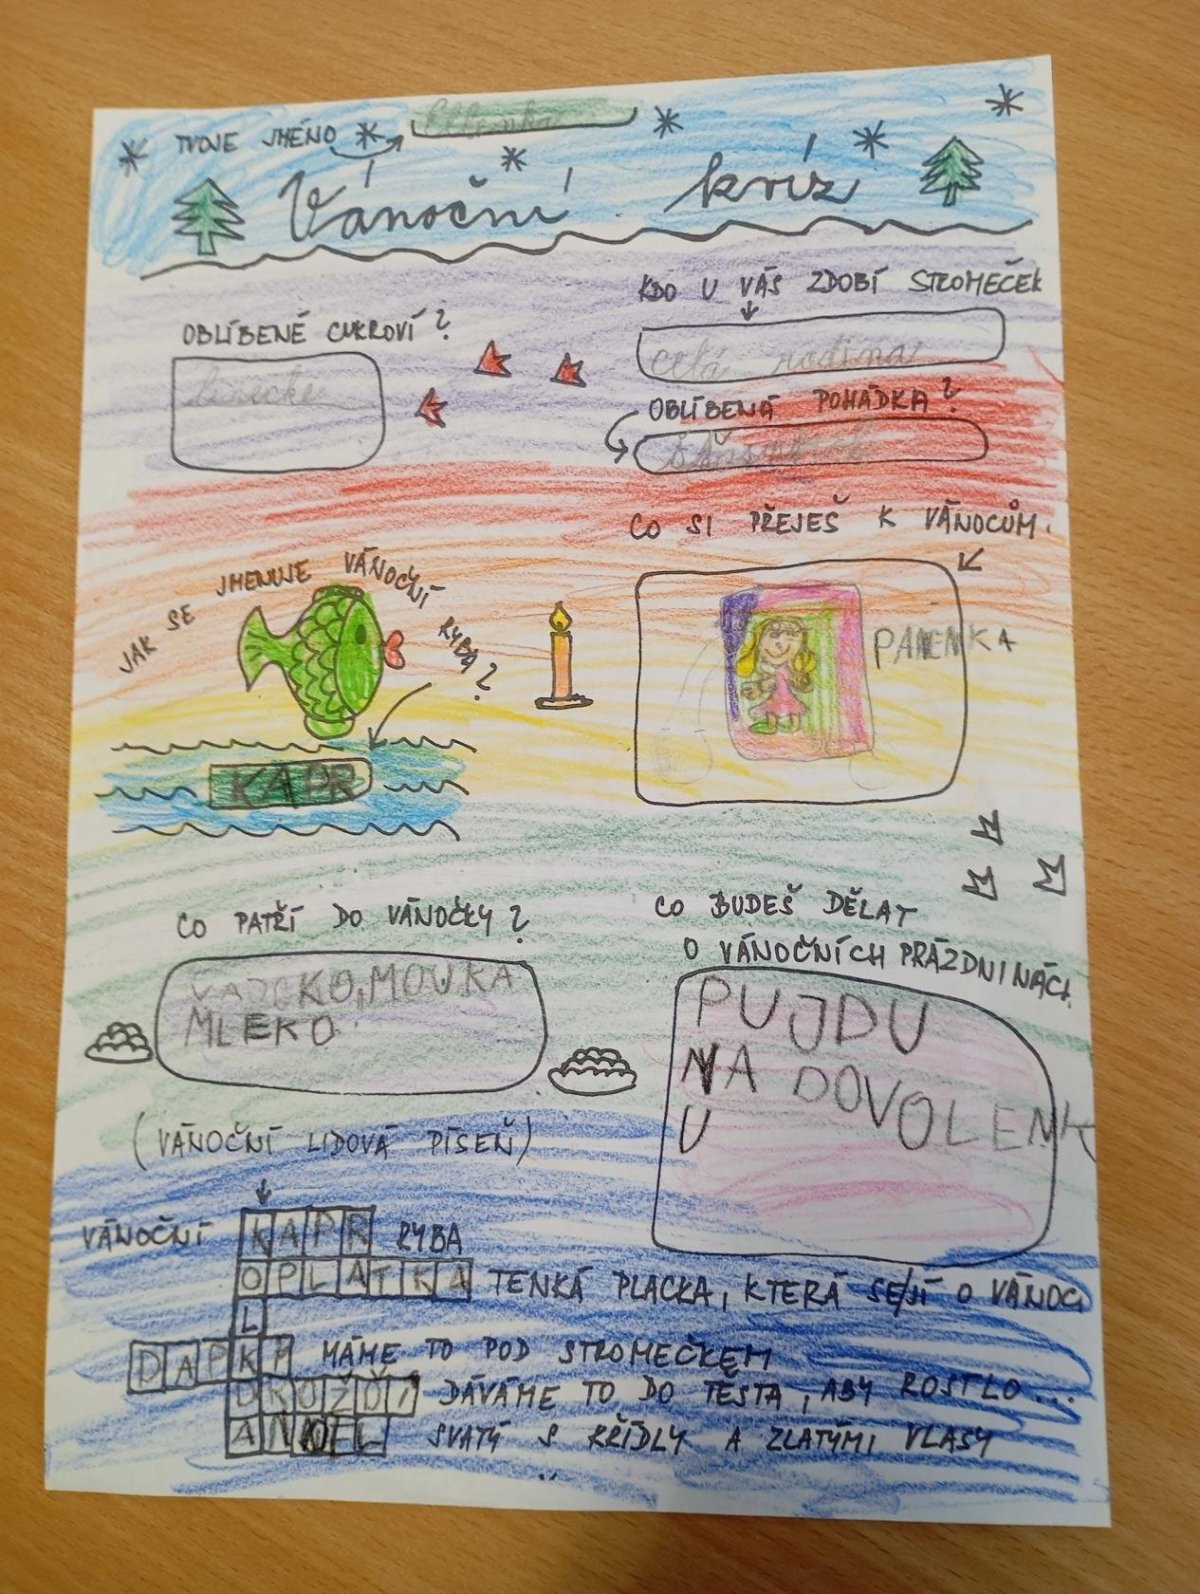 TVOJE JMÉNO
Vánoční kvíz
OBLÍBENÉ CUKROVÍ?
KDO U VÁS ZDOBÍ STROMEČEK
celá rodina
OBLÍBENÁ POHÁDKA?
CO SI PŘEJEŠ K VÁNOCŮM.
PANENKA
JAK SE JMENUJE VÁNOČNÍ RYBA?
KAPR
CO PATŘÍ DO VÁNOČKY?
MOUKA
MLEKO
CO BUDEŠ DĚLAT
O VÁNOČNÍCH PRÁZDNINÁCH
PUJDU
NA DOVOLENK
U
(VÁNOČNÍ LIDOVÁ PÍSEŇ)
VÁNOČNÍ KAPR RYBA
OPLATKA TENKÁ PLACKA, KTERÁ SE JÍ O VÁNOC
L
DAPKP MÁME TO POD STROMEČKEM
DROŽDÍ DÁVÁME TO DO TĚSTA, ABY ROSTLO...
ANDEL SVATÝ S KŘÍDLY A ZLATÝMI VLASY